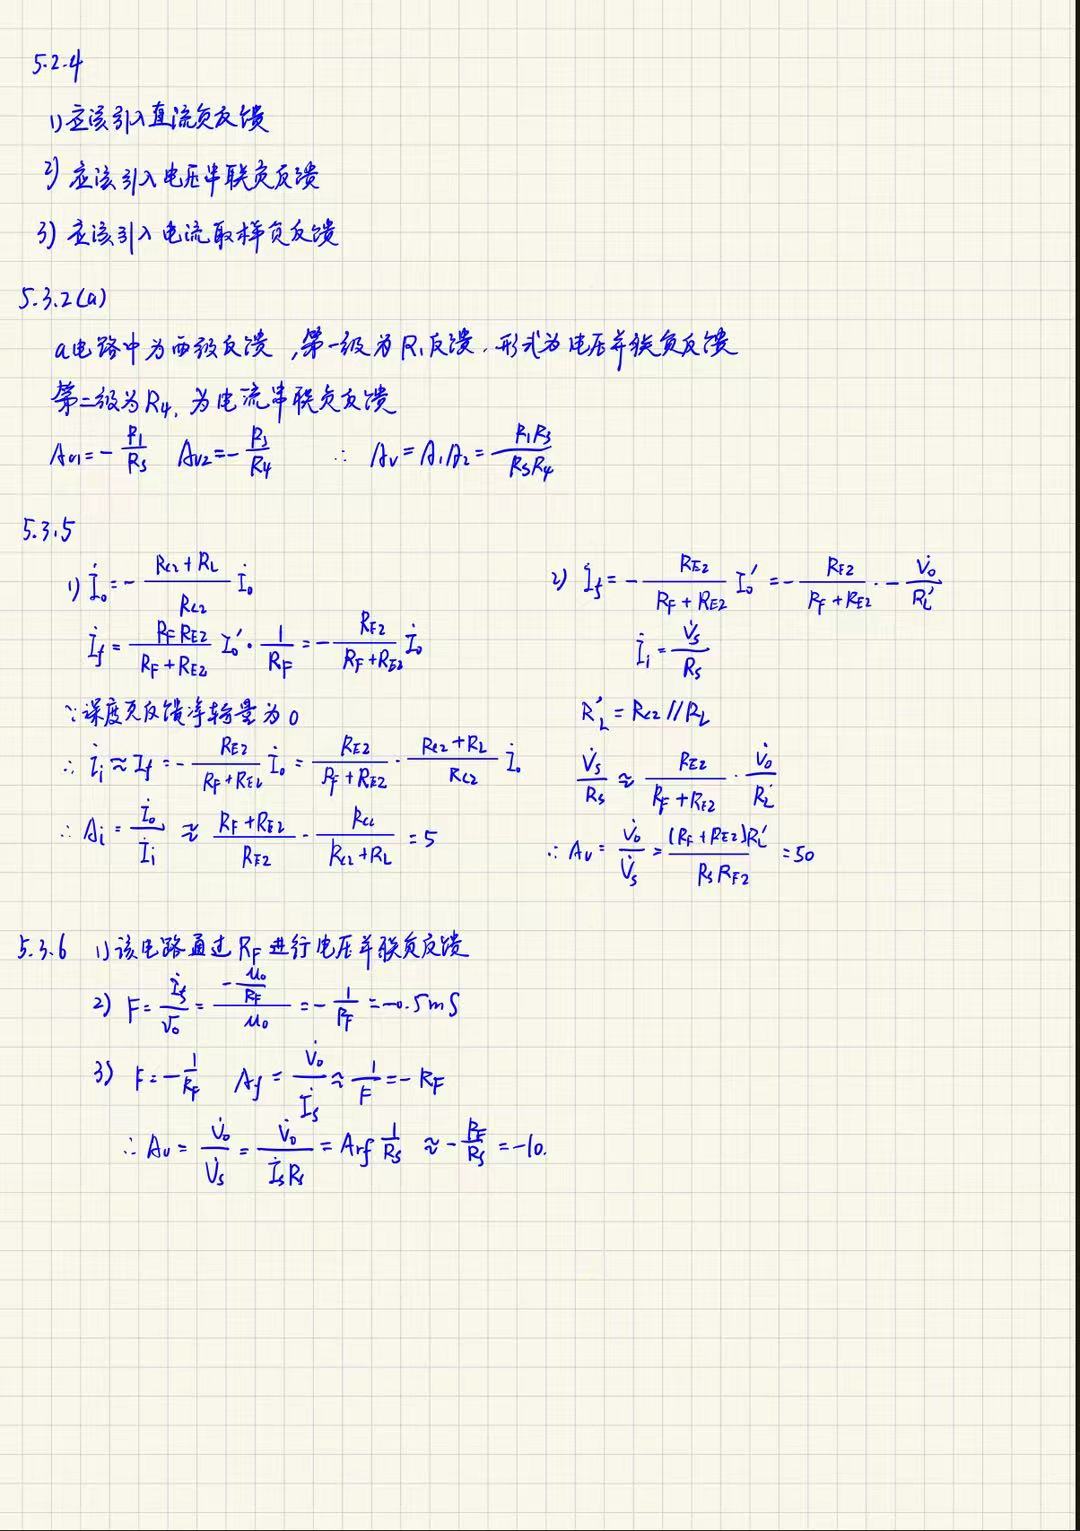 5.2.4
1) 应该引入直流负反馈
2) 应该引入电压串联负反馈
3) 应该引入电流取样负反馈
5.3.2(a)
a电路中为两级反馈，第一级为R₁反馈，形式为电压并联负反馈
第二级为R₄，为电流串联负反馈
Av₁=-R₁/Rs Av₂=-R₃/R₄ ∴ Av=A₁A₂=R₁R₃/RsR₄
5.3.5
1) İo=-(Rc₂+RL)/Rc₂ İo
İf=RFRE₂/(RF+RE₂) Io'·1/RF=-RE₂/(RF+RE₂) İo
∵深度负反馈净输量为0
∴ İi≈If=-RE₂/(RF+RE₂) İo=RE₂/(RF+RE₂)·(Rc₂+RL)/Rc₂ İo
∴ Ai=İo/İi≈(RF+RE₂)/RE₂·Rc₂/(Rc₂+RL)=5
2) İf=-RE₂/(RF+RE₂) Io'=-RE₂/(RF+RE₂)·-V̇o/RL'
İi=V̇s/Rs
RL'=Rc₂//RL
V̇s/Rs≈RE₂/(RF+RE₂)·V̇o/RL'
∴ Av=V̇o/V̇s=(RF+RE₂)RL'/RsRE₂=50
5.3.6 1) 该电路通过RF进行电压并联负反馈
2) F=İf/V̇o=(-uo/RF)/uo=-1/RF=-0.5mS
3) F=-1/RF Af=V̇o/İs≈1/F=-RF
∴ Av=V̇o/V̇s=V̇o/İsRs=Arf 1/Rs≈-RF/Rs=-10.